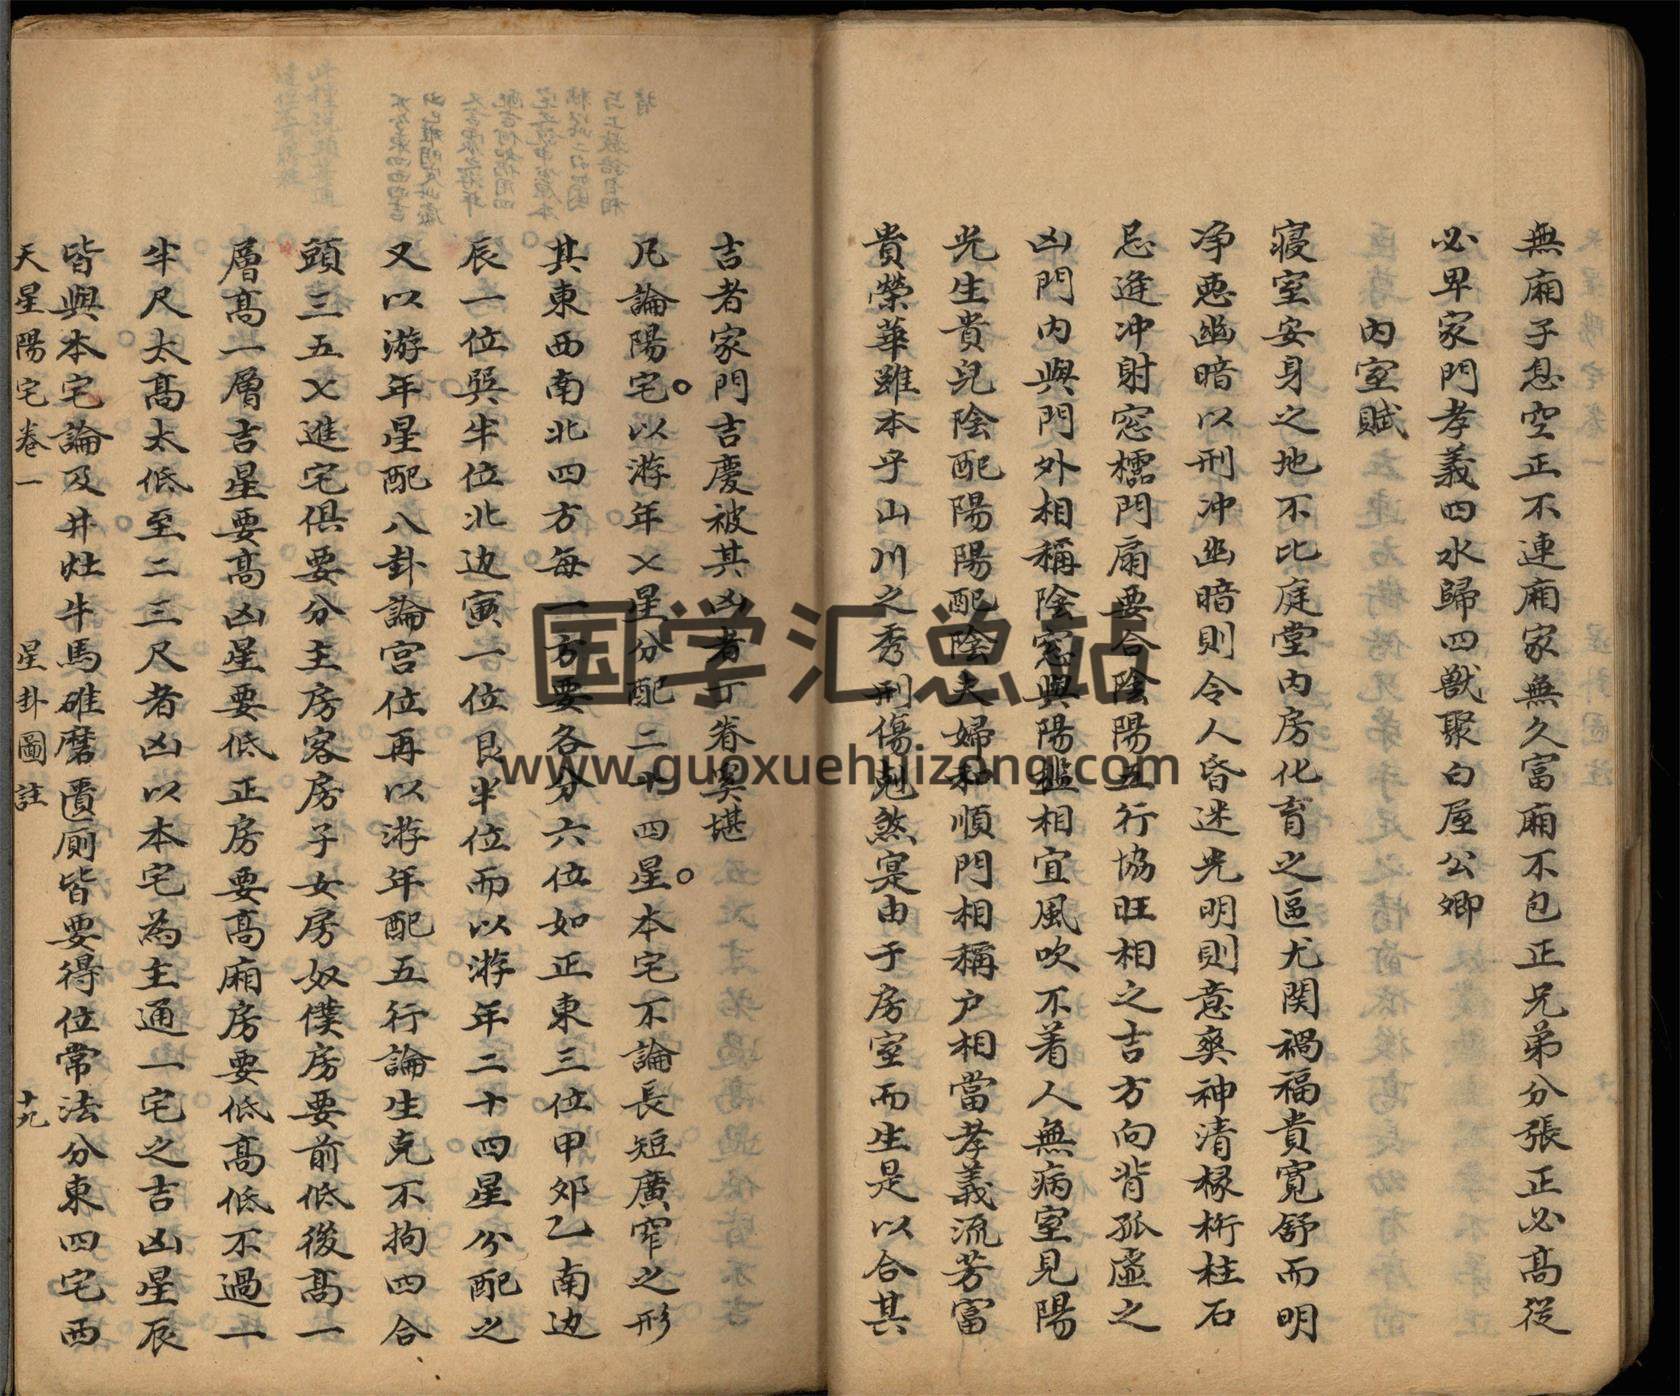 無廂子息空正不連廂家無久富廂不包正兄弟分張正必高從
必卑家門孝義四水歸四獸聚白屋公卿
內室賦
寢室安身之地不比庭堂內房化育之區尤関禍福貴寬舒而明
净惡幽暗以刑冲幽暗則令人昏迷光明則意爽神清椽桁柱石
忌逢冲射窓櫺門扇要合陰陽五行協旺相之吉方向背孤虛之
凶門內與門外相稱陰窓與陽檻相宜風吹不着人無病室見陽
光生貴兒陰配陽陽配陰夫婦和順門相稱户相當孝義流芳富
貴榮華雖本乎山川之秀刑傷剋煞寔由于房室而生是以合其
吉者家門吉慶被其凶者丁眷奚堪
凡論陽宅以游年乂星分配二十四星本宅不論長短廣窄之形
其東西南北四方每一方要各分六位如正東三位甲卯乙南边
辰一位巽半位北边寅一位艮半位而以游年二十四星分配之
又以游年星配八卦論宫位再以游年配五行論生克不拘四合
頭三五乂進宅俱要分主房客房子女房奴僕房要前低後髙一
層髙一層吉星要髙凶星要低正房要髙廂房要低髙低不過一
半尺太髙太低至二三尺者凶以本宅為主通一宅之吉凶星辰
皆與本宅論及井灶牛馬碓磨匱厠皆要得位常法分東四宅西
天星陽宅卷一 星卦圖註 十九
国学汇总站
www.guoxuehuizong.com